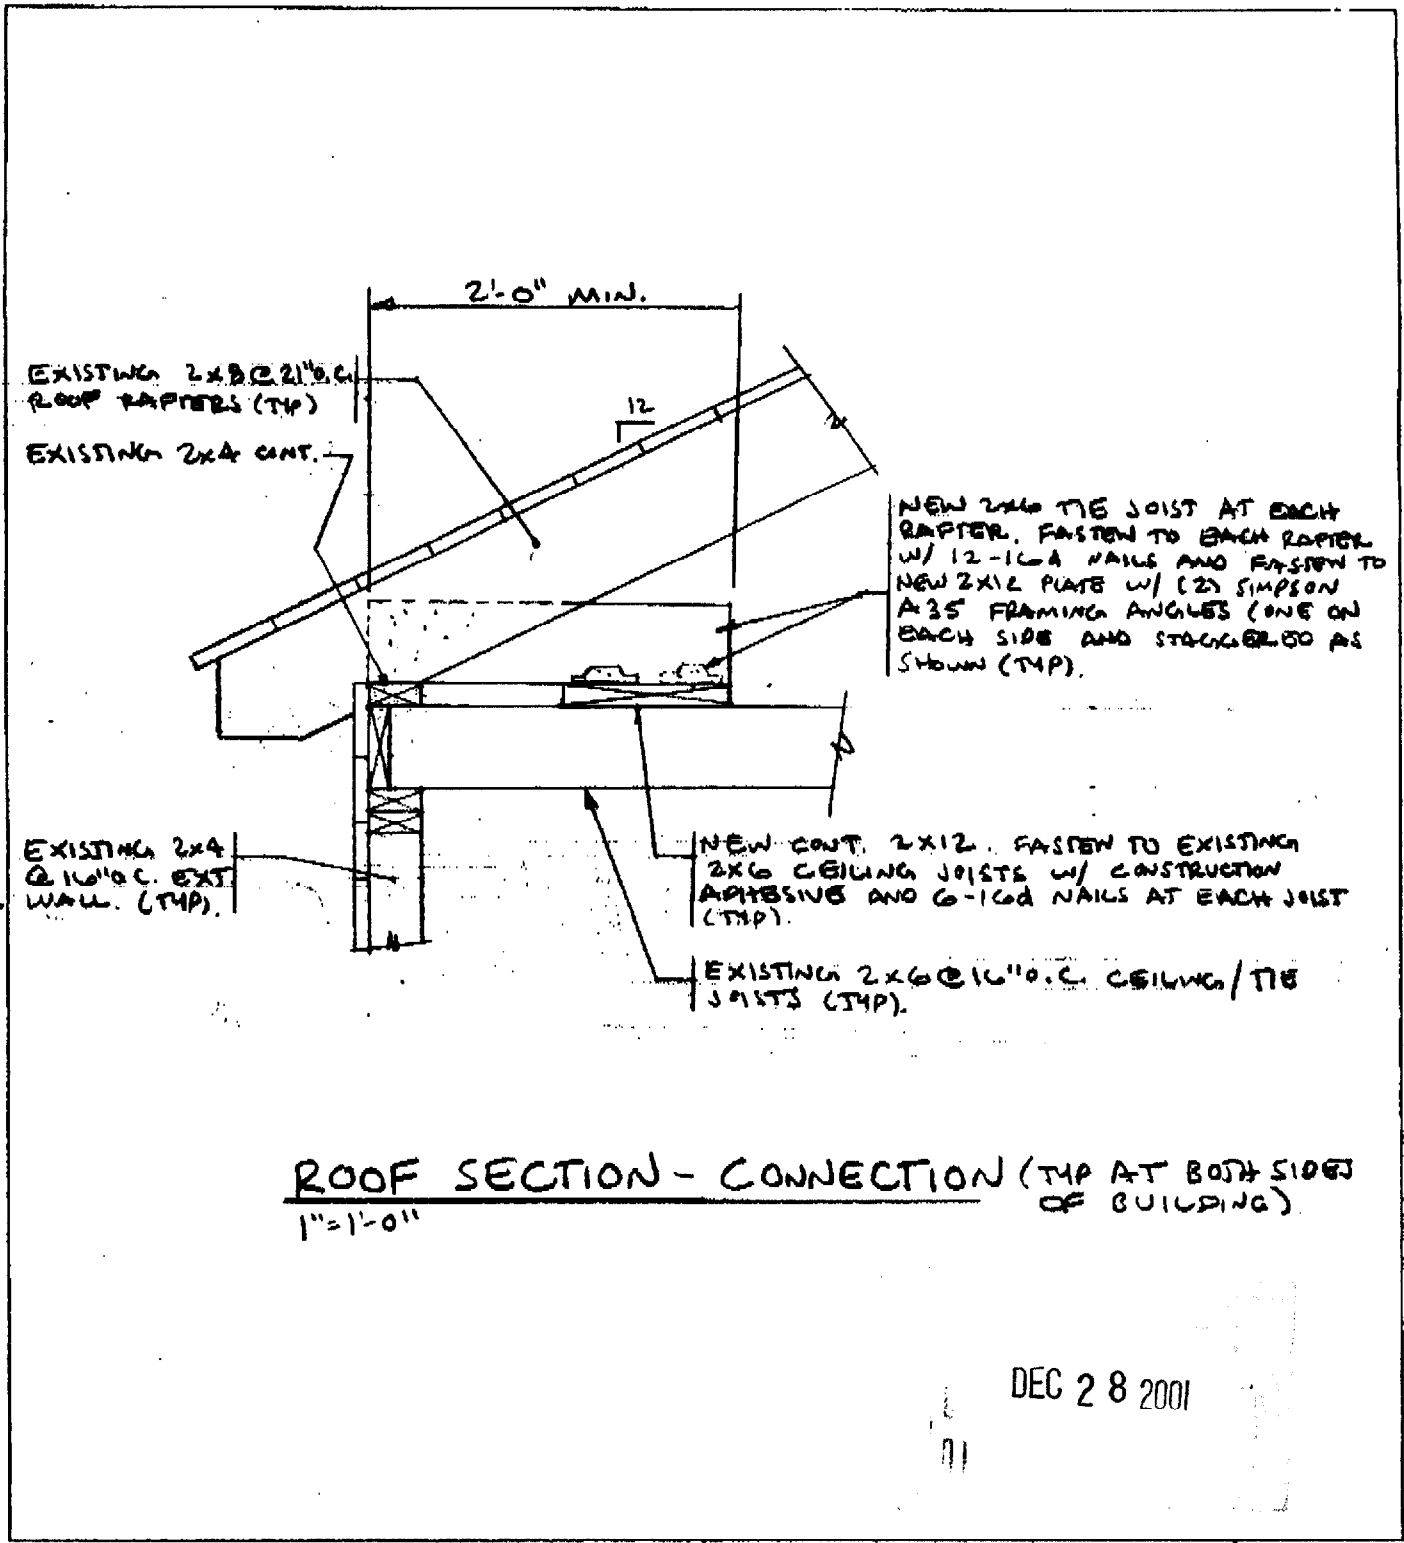 2'-0" MIN.
EXISTING 2x8 @ 21" O.C.
ROOF RAFTERS (TYP)
12
EXISTING 2x4 CONT.
NEW 2x6 TIE JOIST AT EACH
RAFTER. FASTEN TO EACH RAFTER
W/ 12-16d NAILS AND FASTEN TO
NEW 2X12 PLATE W/ (2) SIMPSON
A35 FRAMING ANGLES (ONE ON
EACH SIDE AND STAGGERED AS
SHOWN (TYP).
EXISTING 2x4
@ 16" O.C. EXT
WALL. (TYP).
NEW CONT. 2X12. FASTEN TO EXISTING
2X6 CEILING JOISTS W/ CONSTRUCTION
ADHESIVE AND 6-16d NAILS AT EACH JOIST
(TYP).
EXISTING 2x6 @ 16" O.C. CEILING/TIE
JOISTS (TYP).
ROOF SECTION - CONNECTION (TYP AT BOTH SIDES
OF BUILDING)
1"=1'-0"
DEC 28 2001